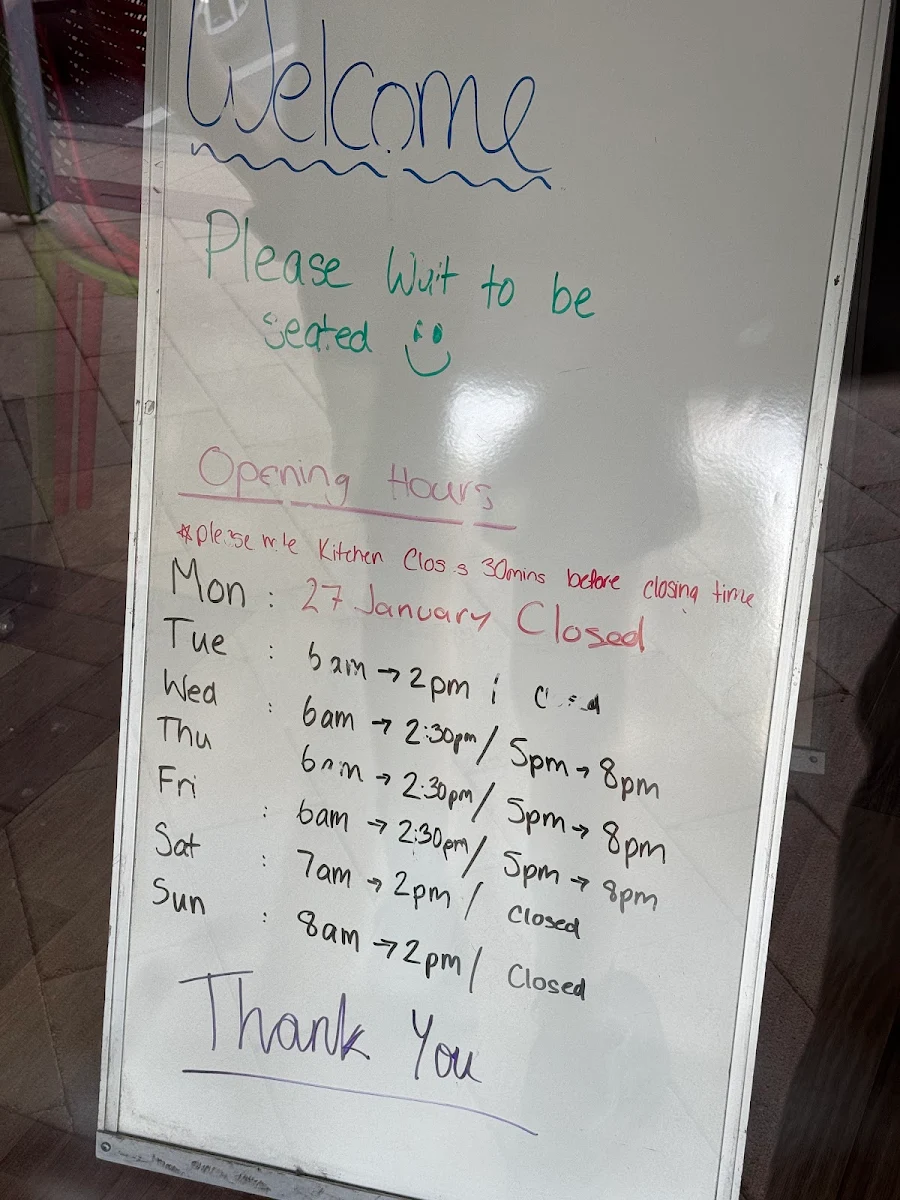 Welcome
Please Wait to be
seated
Opening Hours
*please note Kitchen Closes 30mins before closing time
Mon : 27 January Closed
Tue : 6am → 2pm / Closed
Wed : 6am → 2:30pm / 5pm → 8pm
Thu 6am → 2:30pm / 5pm → 8pm
Fri : 6am → 2:30pm / 5pm → 8pm
Sat : 7am → 2pm / Closed
Sun : 8am → 2pm / Closed
Thank You